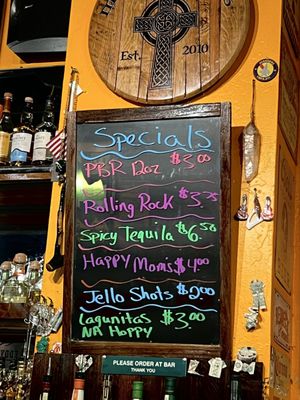 Est. 2010
Specials
PBR 12oz $3.00
Rolling Rock $3.75
Spicy Tequila $6.50
Happy Mom's $4.00
Jello Shots $2.00
Lagunitas $3.00
NA Hoppy
PLEASE ORDER AT BAR
THANK YOU